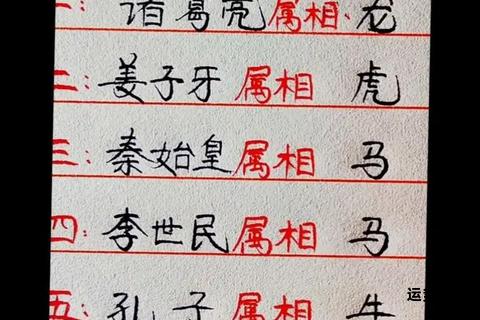 一：诸葛亮属相：龙
二：姜子牙属相 虎
三：秦始皇属相 马
四：李世民属相 马
五：孔子属相 牛
运